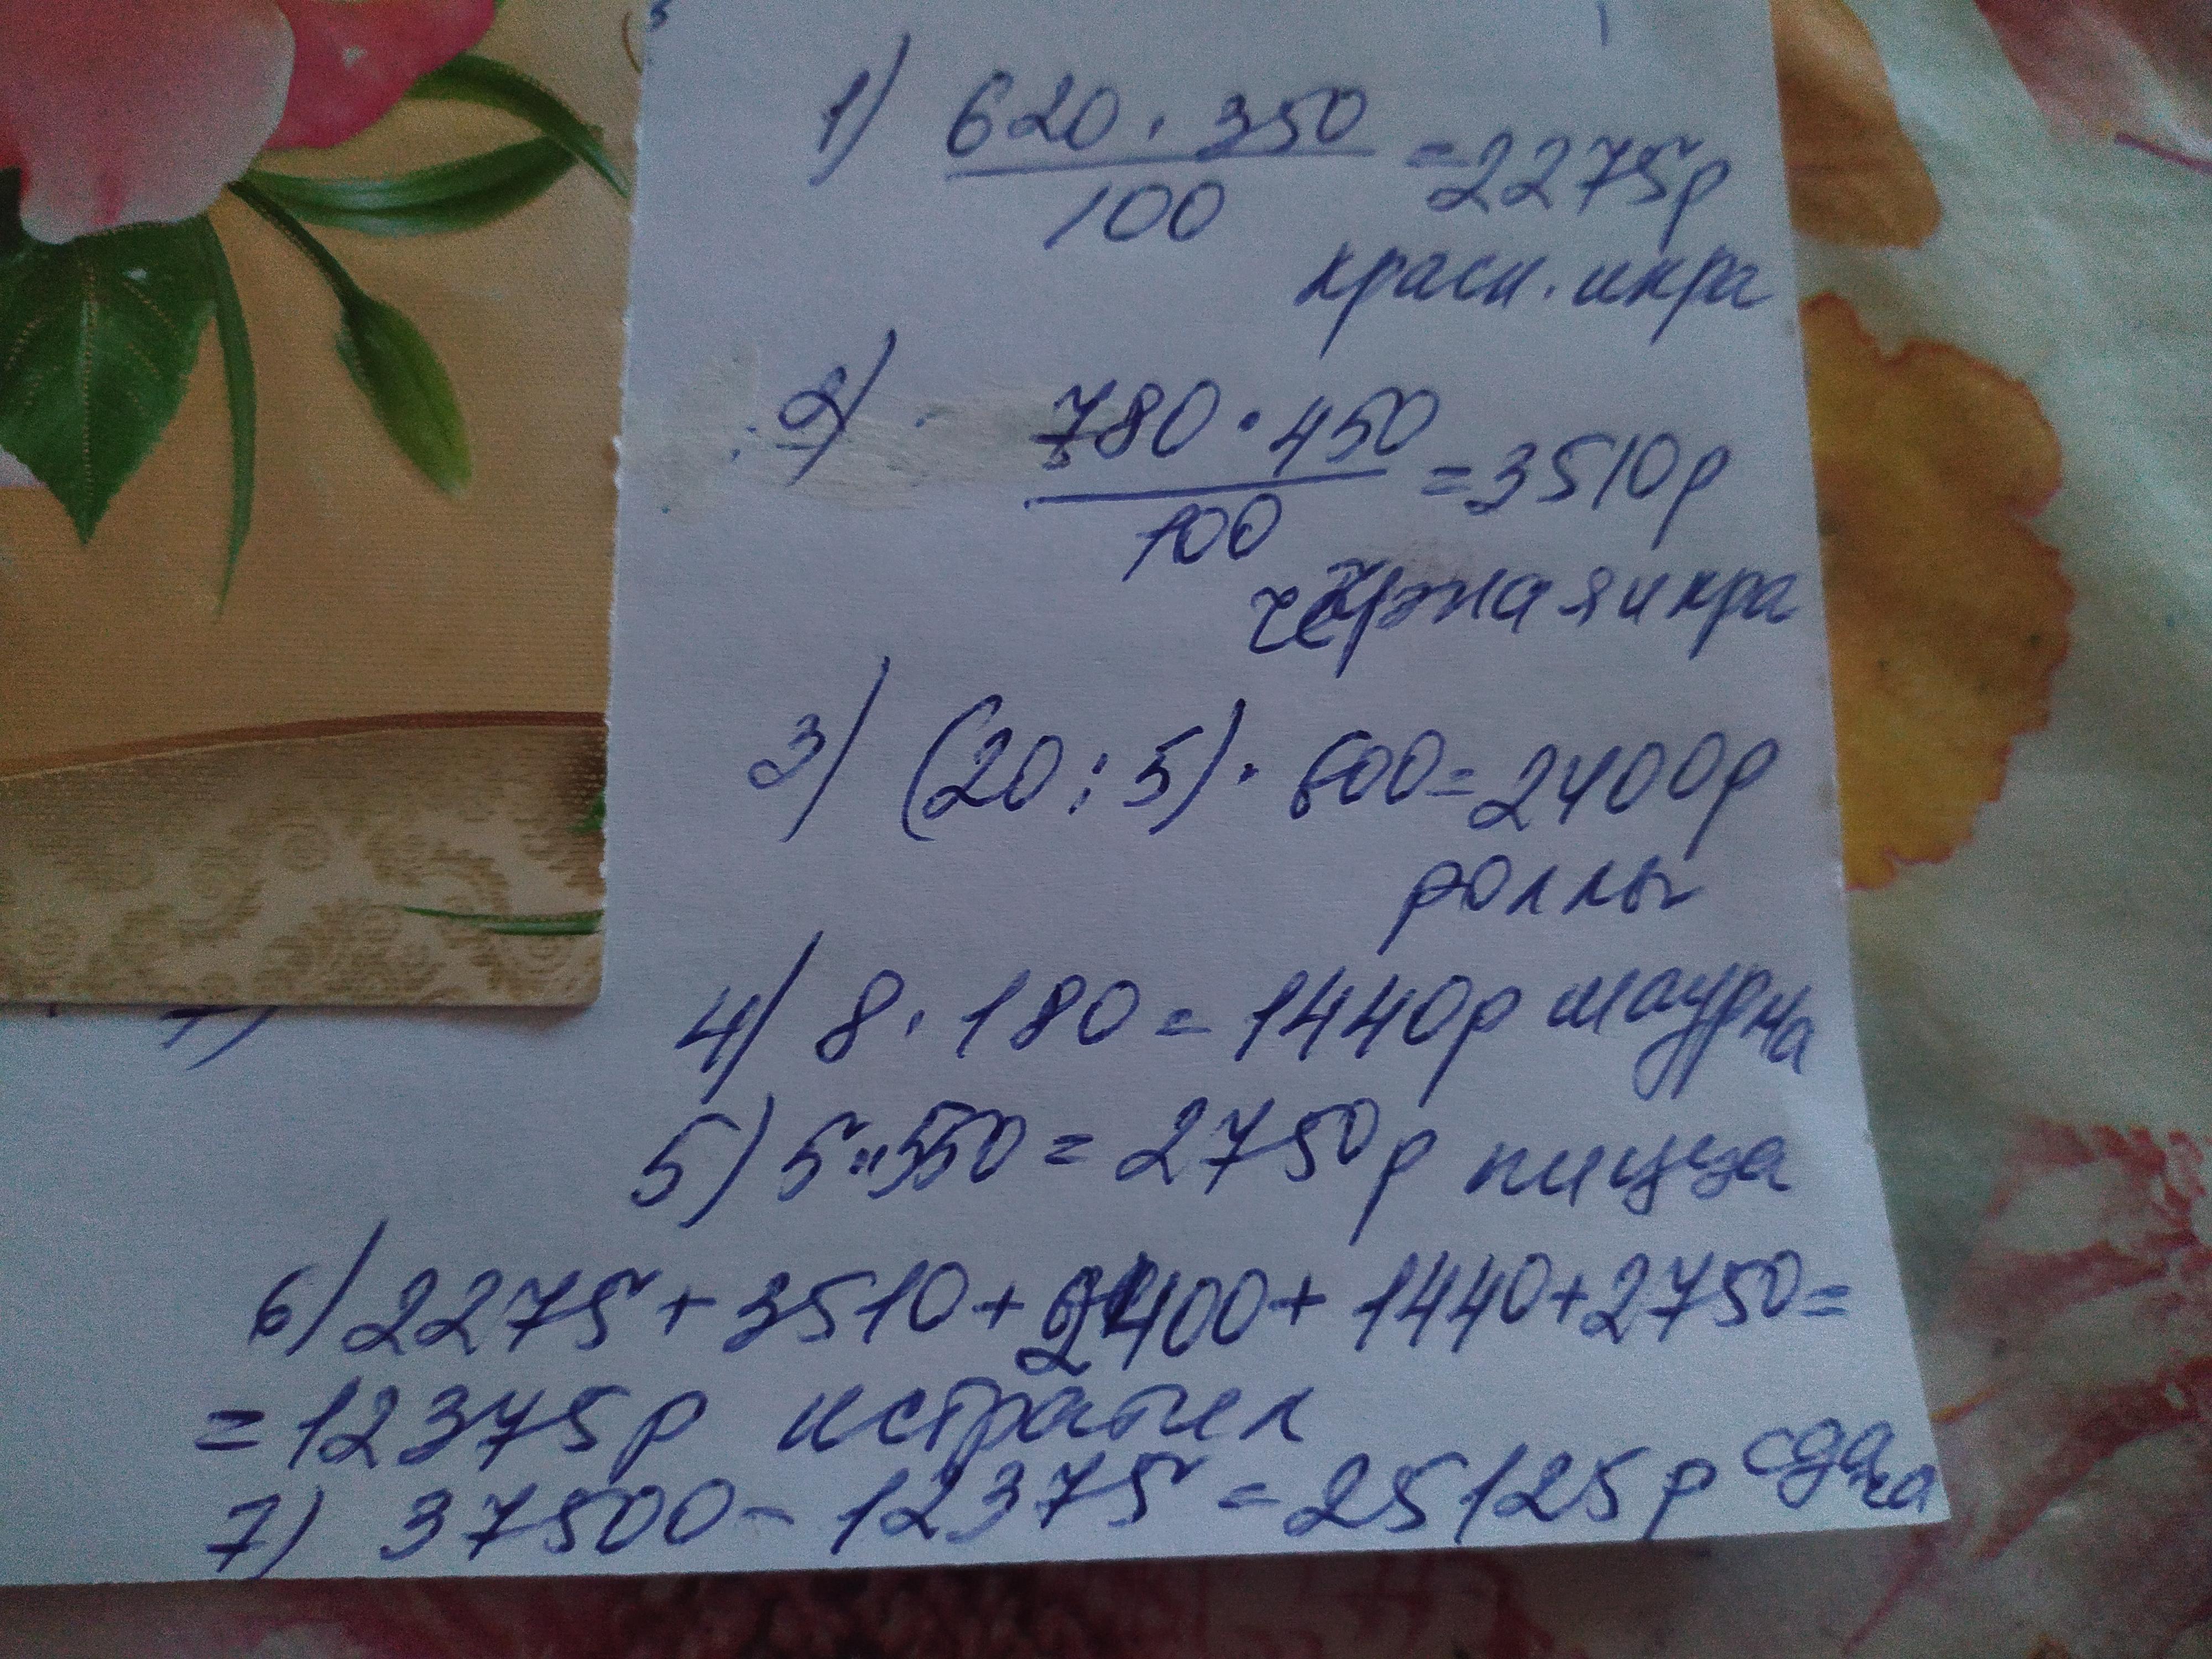 1) 620 · 350 / 100 = 2275р
красн. икра
2) 780 · 450 / 100 = 3510р
чёрная икра
3) (20 : 5) · 600 = 2400р
роллы
4) 8 · 180 = 1440р шаурма
5) 5 · 550 = 2750р пицца
6) 2275 + 3510 + 2400 + 1440 + 2750 =
= 12375р истратил
7) 37500 - 12375 = 25125р сдача